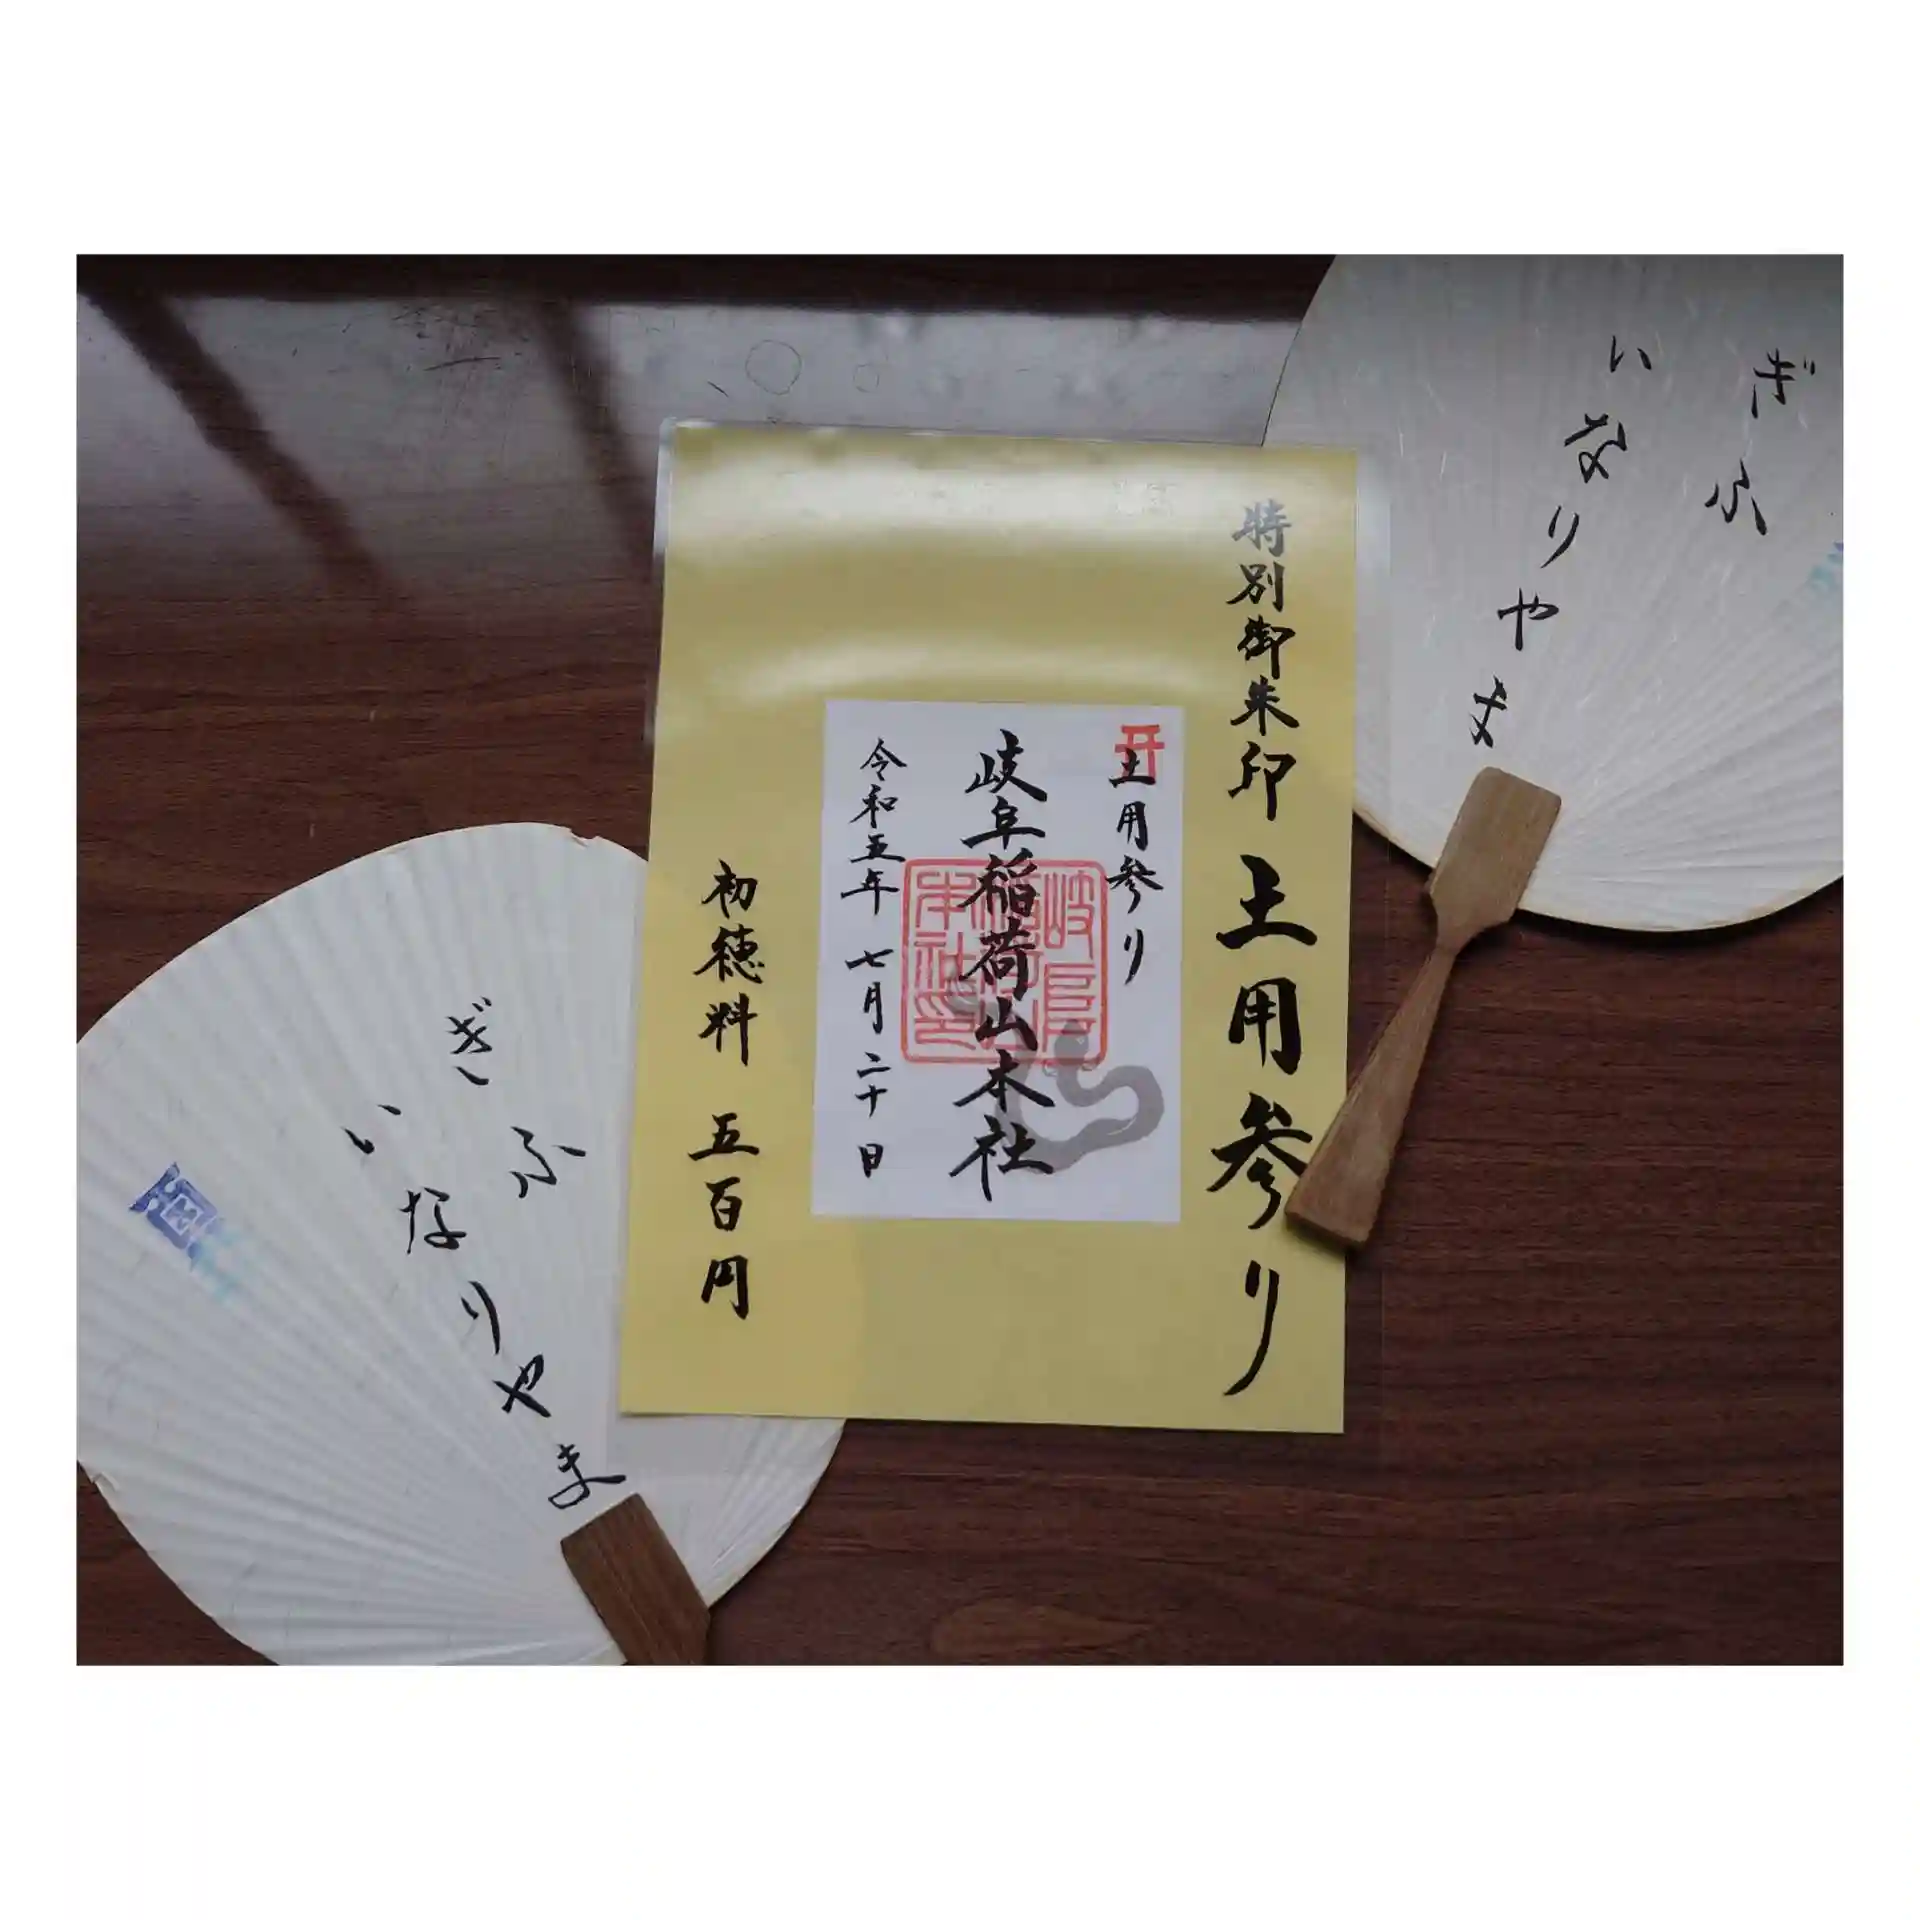 特別御朱印 土用参り
土用参り
岐阜稲荷山本社
令和五年 七月二十日
初穂料 五百円
ぎふ
いなりやま
ぎふ
いなりやま